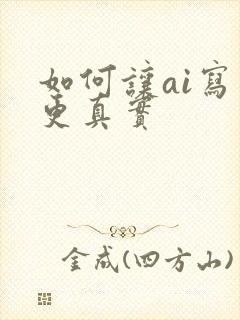 如何讓ai寫
更真實
金成(四方山)